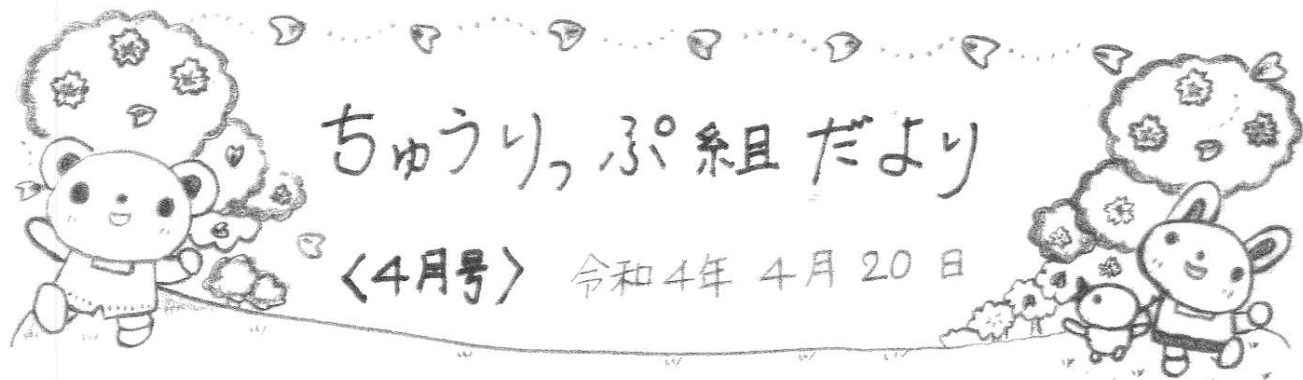 ちゅうりっぷ組だより
〈4月号〉 令和4年 4月 20日